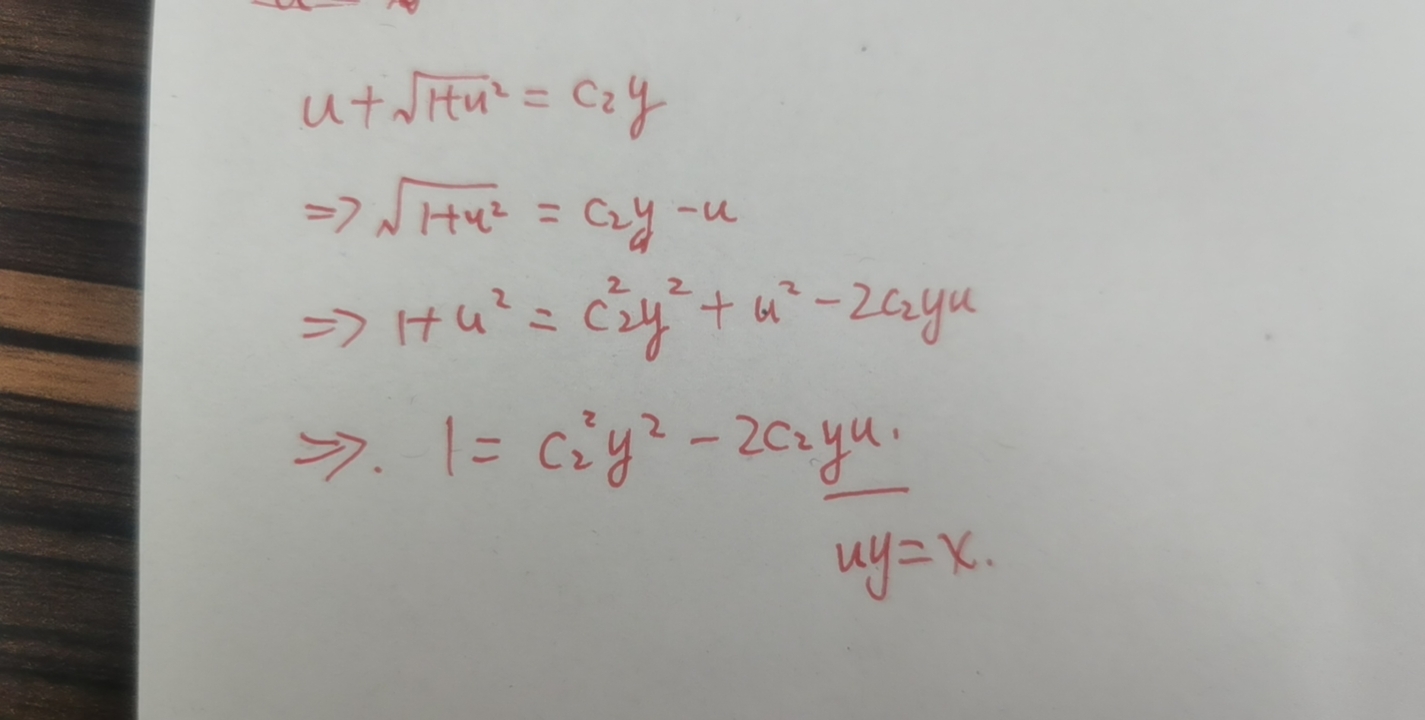 u+√1+u² = c₂y
=> √1+u² = c₂y -u
=> 1+u² = c₂²y² + u² - 2c₂yu
=>. 1 = c₂²y² - 2c₂yu.
uy=x.